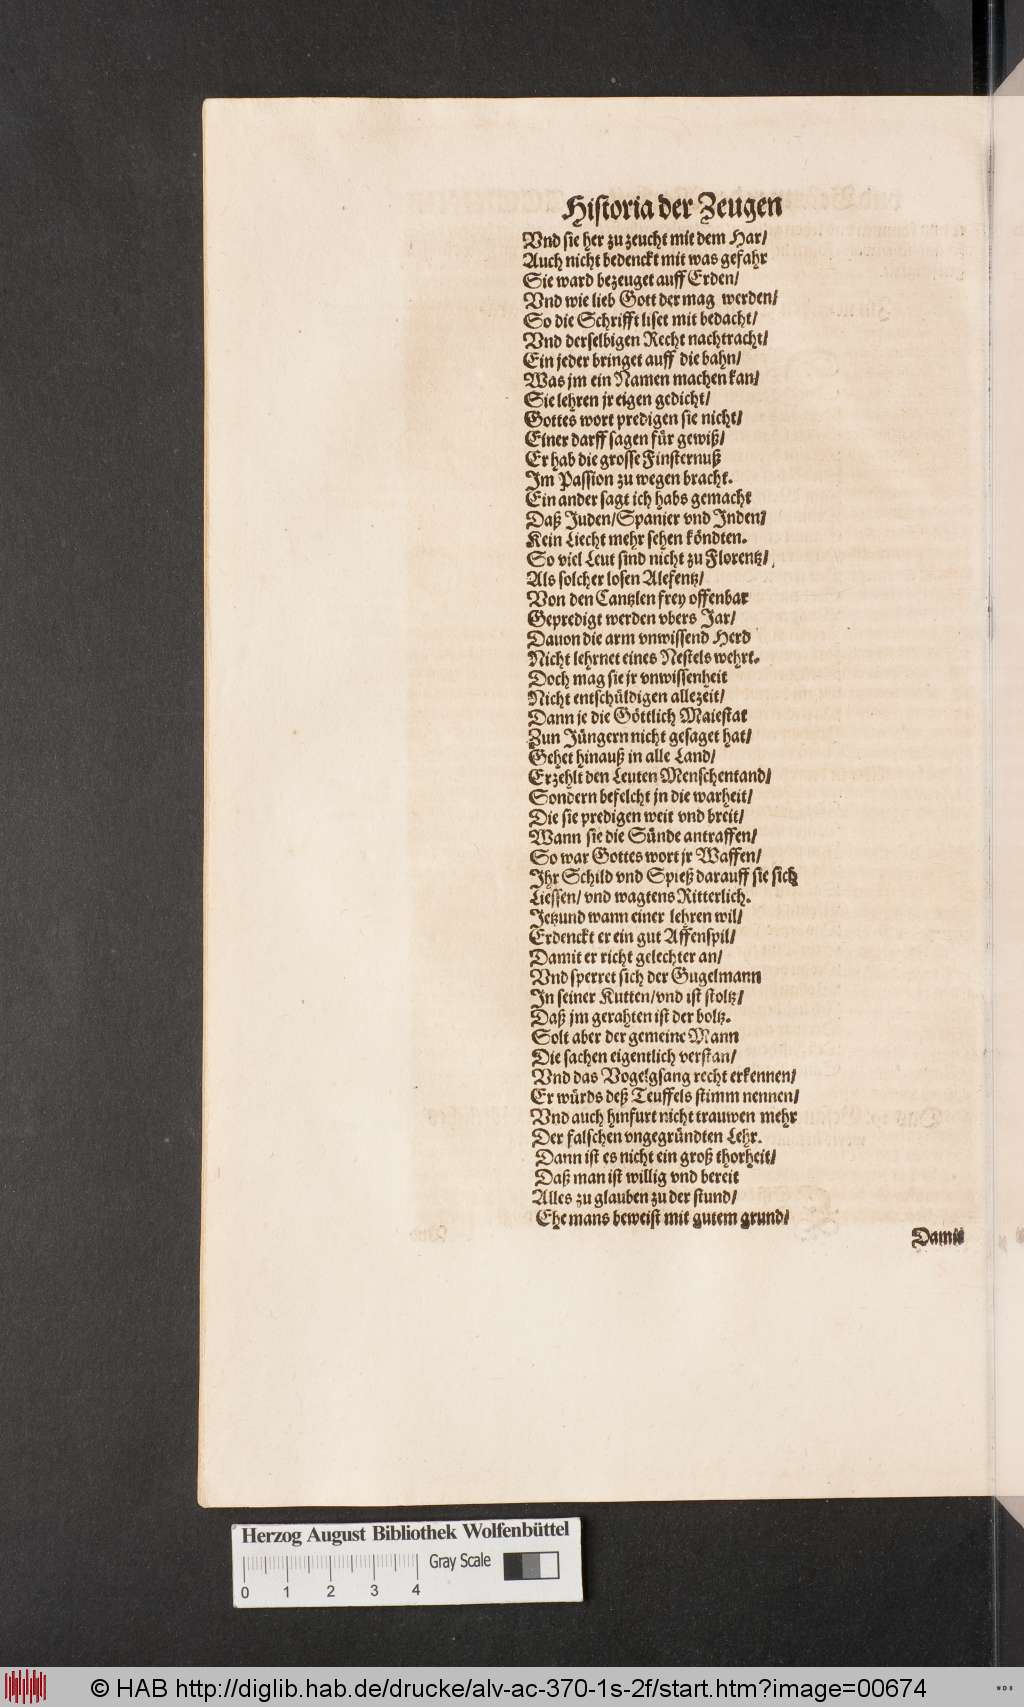 Historia der Zeugen
Vnd sie her zu zeucht mit dem Har/
Auch nicht bedenckt mit was gefahr
Sie ward bezeuget auff Erden/
Vnd wie lieb Gott der mag werden/
So die Schrifft liset mit bedacht/
Vnd derselbigen Recht nachtracht/
Ein jeder bringet auff die bahn/
Was jm ein Namen machen kan/
Sie lehren jr eigen gedicht/
Gottes wort predigen sie nicht/
Einer darff sagen für gewiß/
Er hab die grosse Finsternuß
Im Passion zu wegen bracht.
Ein ander sagt ich habs gemacht
Daß Juden/Spanier vnd Inden/
Kein Liecht mehr sehen köndten.
So viel Leut sind nicht zu Florentz/
Als solcher losen Alefentz/
Von den Cantzlen frey offenbar
Gepredigt werden vbers Jar/
Dauon die arm vnwissend Herd
Nicht lehrnet eines Nestels wehrt.
Doch mag sie jr vnwissenheit
Nicht entschüldigen allezeit/
Dann je die Göttlich Maiestat
Zun Jüngern nicht gesaget hat/
Gehet hinauß in alle Land/
Erzehlt den Leuten Menschentand/
Sondern befelcht jn die warheit/
Die sie predigen weit vnd breit/
Wann sie die Sünde antraffen/
So war Gottes wort jr Waffen/
Ihr Schild vnd Spieß darauff sie sich
Liessen/ vnd wagtens Ritterlich.
Jetzund wann einer lehren wil/
Erdenckt er ein gut Affenspil/
Damit er richt gelechter an/
Vnd sperret sich der Gugelmann
In seiner Kutten/vnd ist stoltz/
Daß jm gerahten ist der boltz.
Solt aber der gemeine Mann
Die sachen eigentlich verstan/
Vnd das Vogelgsang recht erkennen/
Er würds deß Teuffels stimm nennen/
Vnd auch hinfurt nicht trauwen mehr
Der falschen vngegründten Lehr.
Dann ist es nicht ein groß thorheit/
Daß man ist willig vnd bereit
Alles zu glauben zu der stund/
Ehe mans beweist mit gutem grund/
Damit
Herzog August Bibliothek Wolfenbüttel
Gray Scale
0 1 2 3 4
© HAB http://diglib.hab.de/drucke/alv-ac-370-1s-2f/start.htm?image=00674